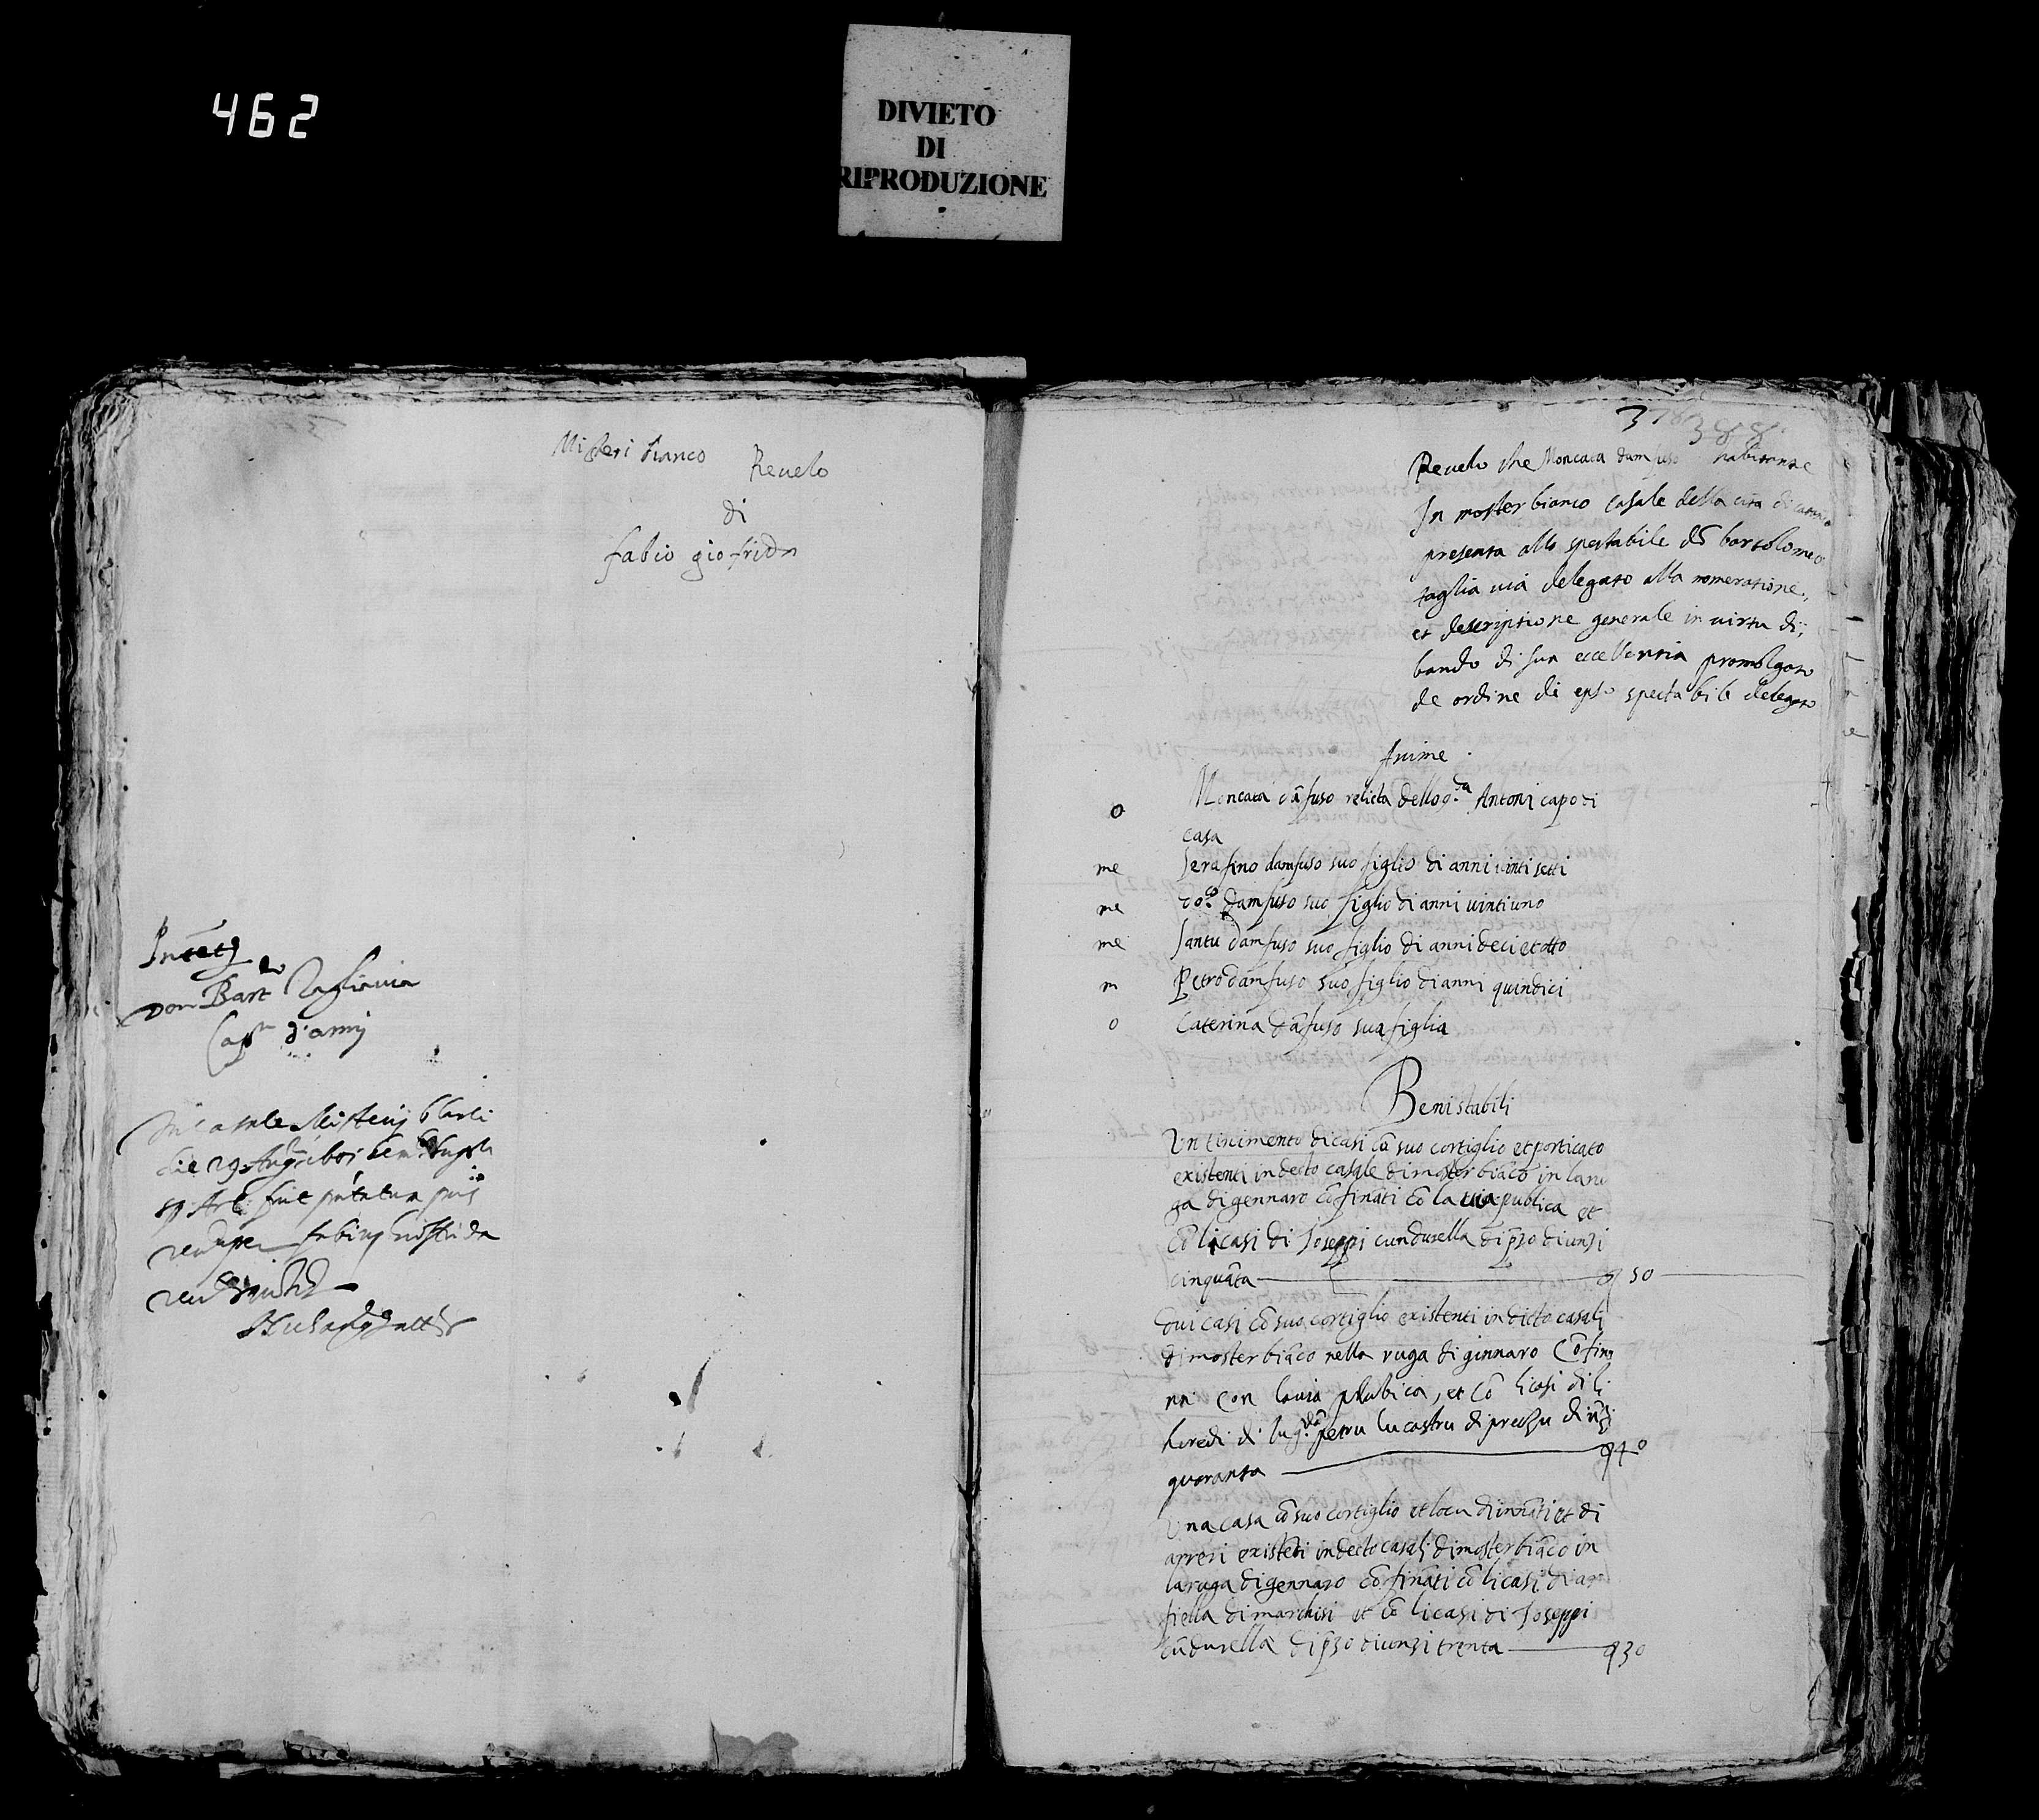 462
DIVIETO
DI
RIPRODUZIONE
Misteri bianco Revelo
di
fabio giofrida
don Bart Tagliavia
Cap.n d'armi
die 29
388
Revelo che Moncata damfuso habitante
In mosterbianco casale della cita di catania
presenta allo spectabile dō bartolomeo
taglia via delegato alla nomeratione,
et descriptione generale in virtu di,
bando di sua eccellentia promolgato
de ordine di epso spectabile delegato
Anime
o Moncata dāfuso relicta dello q.dā Antoni capo di
casa
me Serafino damfuso suo figlio di anni vinti setti
me do.co damfuso suo figlio di anni vintiuno
me Santu damfuso suo figlio di anni deci et otto
m Petro damfuso suo figlio di anni quindici
o Caterina dāfuso sua figlia
Beni stabili
Un tinimento di casi cō suo cortiglio et porticato
existenti in decto casale di mosterbiāco in la ru
ga di gennaro cōfinati cō la via publica et
cō li casi di Joseppi cundurella di p̄zo di unzi
cinquāta 50
dui casi cō suo cortiglio existenti in dicto casali
di mosterbiāco nella ruga di ginnaro Cōfin
con la via plubica, et Cō li casi di li
heredi di lu q.dā petru lu castru di preczu di ūzi
quaranta 40
Una casa cō suo cortiglio et locu dinnāti et di
appresi existēti in decto casali di mosterbiāco in
la ruga di gennaro cōfināti cō li casi di
di marchisi et cō li casi di Joseppi
cūdurella di p̄zo di unzi trenta 30